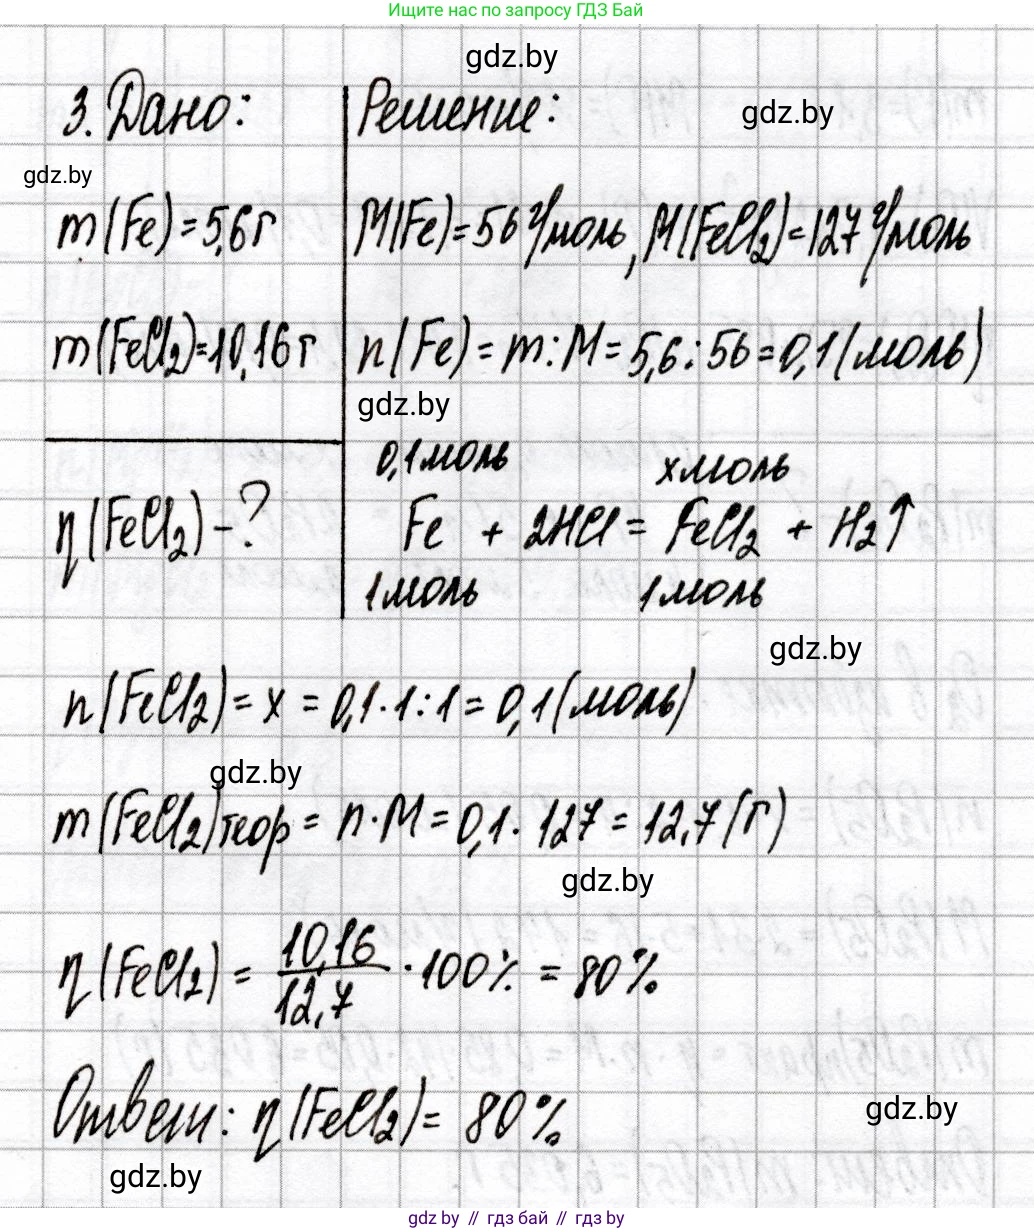 Ищите нас по запросу ГДЗ Бай
gdz.by
3. Дано:
Решение:
gdz.by
gdz.by
m(Fe)=5,6г
M(Fe)=56 г/моль, M(FeCl₂)=127 г/моль
m(FeCl₂)=10,16 г
n(Fe) = m:M = 5,6:56=0,1(моль)
gdz.by
0,1моль
xмоль
η(FeCl₂) - ?
Fe + 2HCl = FeCl₂ + H₂↑
1моль
1моль
gdz.by
n(FeCl₂) = x = 0,1·1:1 = 0,1(моль)
gdz.by
m(FeCl₂)теор = n·M = 0,1·127 = 12,7(г)
gdz.by
η(FeCl₂) = 10,16/12,7 ·100% = 80%
Ответ: η(FeCl₂) = 80%
gdz.by
gdz.by
gdz.by // гдз бай // gdz by